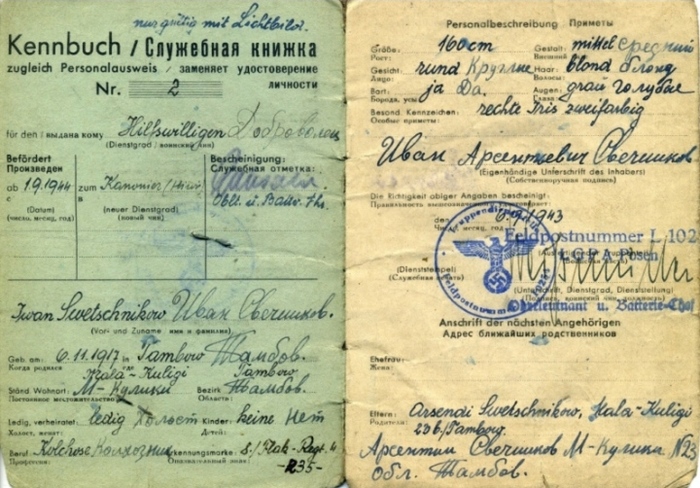 nur gültig mit Lichtbild.
Kennbuch / Служебная книжка
zugleich Personalausweis / заменяет удостоверение
личности
Nr. 2
für den / выдана кому Hilfswilligen Доброволец
(Dienstgrad / воинский чин)
Befördert
Произведен
Bescheinigung:
Служебная отметка:
ab 1.9.1944 zum Kanonier (Hiwi)
с
Oblt. u. Battr. Fhr.
(Datum) (neuer Dienstgrad)
(число, месяц, год) (новый чин)
Iwan Swetschnikow Иван Свечников.
(Vor- und Zuname имя и фамилия)
Geb am: 6.11.1917 in Tambow Тамбов.
Когда родился
Mala-Kuligi Tambow
Ständ Wohnort: М-Кулики Bezirk Тамбов.
Постоянное местожительство Область:
Ledig, verheiratet: ledig Холост Kinder: keine Нет
Холост, женат: Детей:
Beruf: Kolchose Колхозник Erkennungsmarke: 5./Flak-Regt. 4
Профессия: Опознавательный знак:
-235-
Personalbeschreibung Приметы
Größe: 160 cm Gestalt: mittel средний
Рост: Внешний
Gesicht: rund Круглые Haar: blond блонд
Лицо: Волосы:
Bart: ja Да. Augen: grau голубые
Борода, усы Глаза:
Besond. Kennzeichen: rechte Iris zweifarbig
Особые приметы:
Иван Арсентиевич Свечников
(Eigenhändige Unterschrift des Inhabers)
(Собственноручная подпись)
Die Richtigkeit obiger Angaben bescheinigt:
den 1943
число, месяц, год
Feldpostnummer L 102
L.G.P.A. Posen
(Dienststempel)
(Unterschrift, Dienstgrad, Dienststellung)
Oberleutnant u. Batterie-Chef
Anschrift der nächsten Angehörigen
Адрес ближайших родственников
Ehefrau:
Жена:
Eltern: Arsendi Swetschnikow, Mala-Kuligi
Родители:
23b/Tambow
Арсентии Свечников М-Кулика №23
обл. Тамбов.